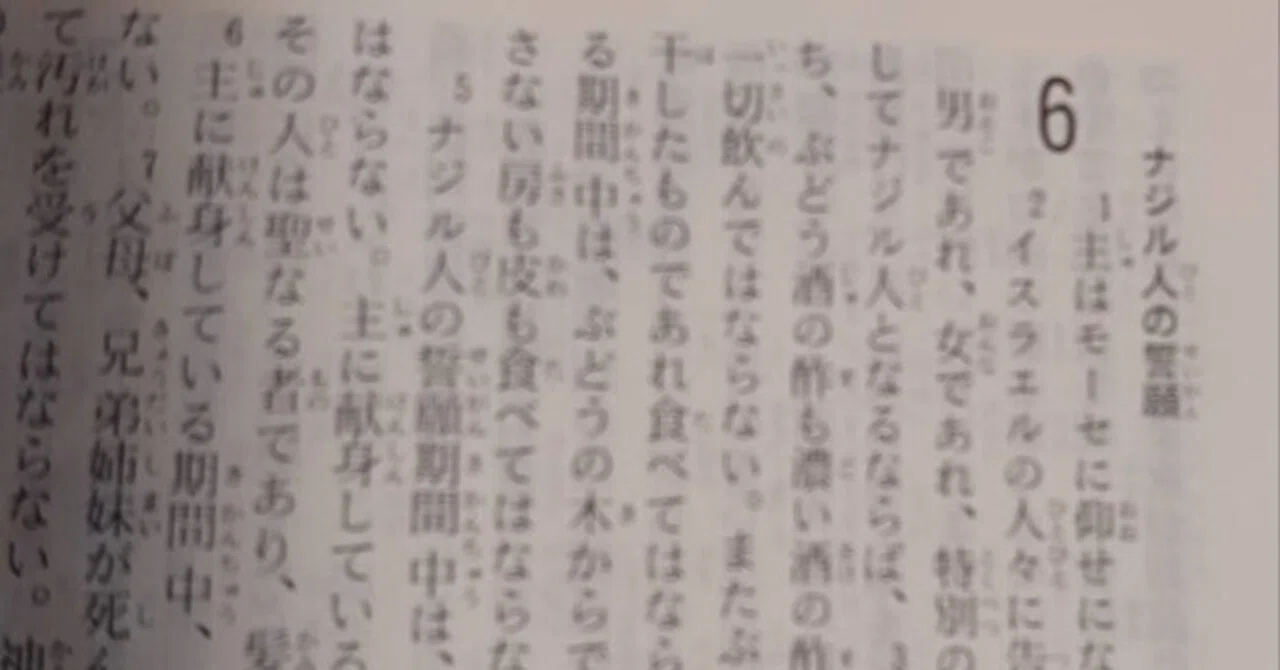 ナジル人の誓願
6
1主はモーセに仰せにな
2イスラエルの人々に告
男であれ、女であれ、特別の
してナジル人となるならば、3
ち、ぶどう酒の酢も濃い酒の酢
一切飲んではならない。またぶ
干したものであれ食べてはなら
る期間中は、ぶどうの木からで
さない房も皮も食べてはならな
5ナジル人の誓願期間中は、
はならない。主に献身している
その人は聖なる者であり、髪
6主に献身している期間中、
ない。7父母、兄弟姉妹が死ん
て汚れを受けてはならない。神